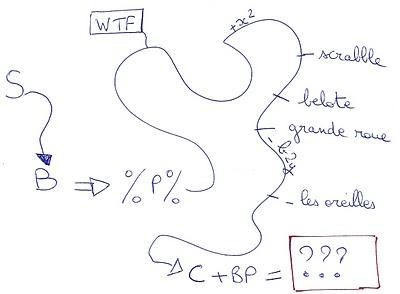 WTF
+x²
scrabble
S
belote
grande roue
B ⇒ % P %
- les oreilles
C + BP = ???